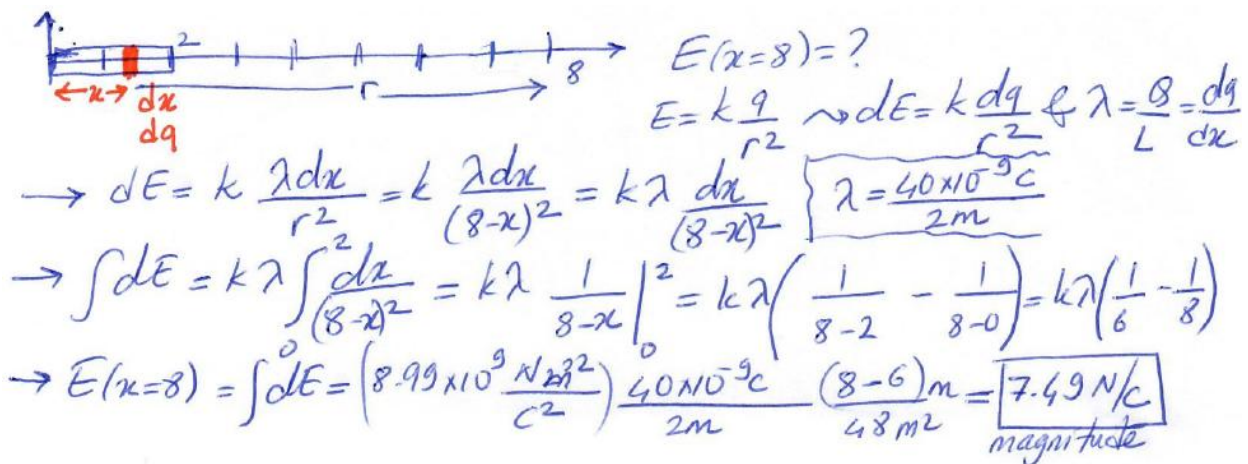 2
8
x
r
dx
dq
E(x=8)=?
E = k q/r² ⤳ dE = k dq/r² & λ = Q/L = dq/dx
→ dE = k λdx/r² = k λdx/(8-x)² = kλ dx/(8-x)² } λ = 40×10⁻⁹C/2m
→ ∫dE = kλ ∫₀² dx/(8-x)² = kλ 1/(8-x) |₀² = kλ(1/(8-2) - 1/(8-0)) = kλ(1/6 - 1/8)
→ E(x=8) = ∫dE = (8.99×10⁹ Nm²/C²) 40×10⁻⁹C/2m (8-6)m/48m² = 7.49 N/C
magnitude